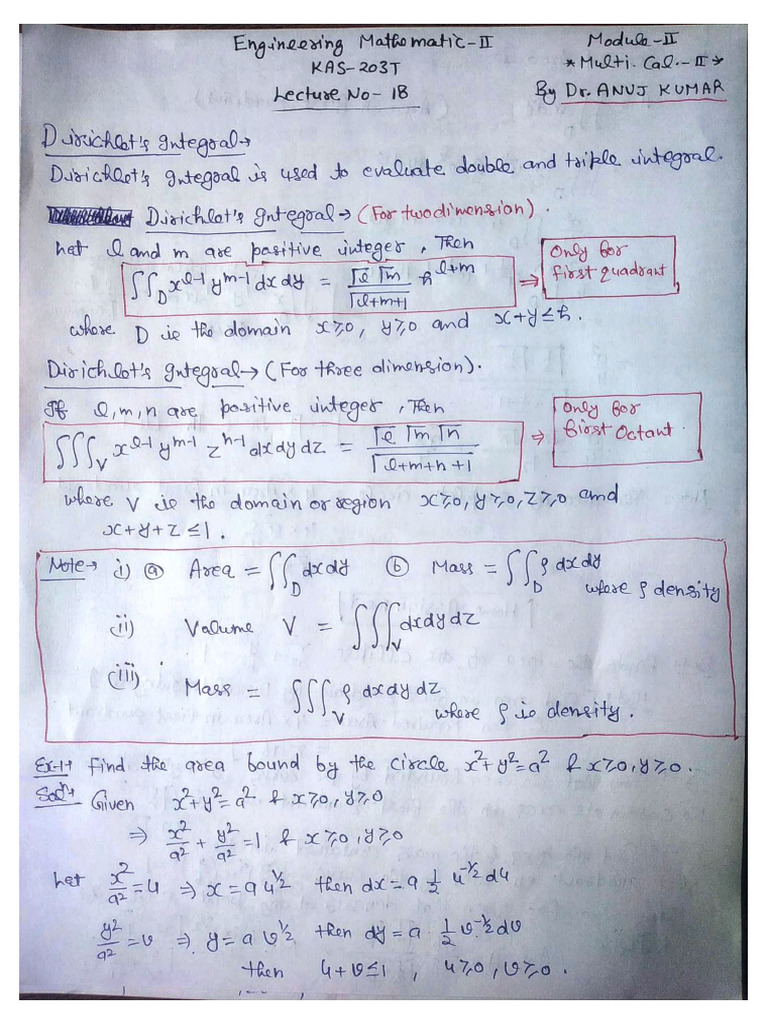 Engineering Mathematic-II
KAS-203T
Lecture No- 18
Module-II
*Multi. Cal.-II*
By Dr. ANUJ KUMAR
Dirichlet's Integral→
Dirichlet's Integral is used to evaluate double and triple integral.
Dirichlet's Integral→ (For two dimension).
Let l and m are positive integer, Then
∬_D x^{l-1} y^{m-1} dx dy = (Γl Γm)/(Γl+m+1) h^{l+m} ⇒ Only for first quadrant
where D is the domain x≥0, y≥0 and x+y≤h.
Dirichlet's Integral→ (For three dimension).
If l, m, n are positive integer, Then
∭_V x^{l-1} y^{m-1} z^{n-1} dx dy dz = (Γl Γm Γn)/(Γl+m+n+1) ⇒ Only for first Octant.
where V is the domain or region x≥0, y≥0, z≥0 and
x+y+z≤1.
Note→ i) ⓐ Area = ∬_D dx dy ⓑ Mass = ∬_D ρ dx dy where ρ density
ii) Volume V = ∭_V dx dy dz
iii) Mass = ∭_V ρ dx dy dz where ρ is density.
Ex-1→ Find the area bound by the circle x²+y²=a² & x≥0, y≥0.
Solⁿ→ Given x²+y²=a² & x≥0, y≥0
⇒ x²/a² + y²/a² = 1 & x≥0, y≥0
Let x²/a² = u ⇒ x = a u^{1/2} then dx = a 1/2 u^{-1/2} du
y²/a² = v ⇒ y = a v^{1/2} then dy = a 1/2 v^{-1/2} dv
then u+v≤1, u≥0, v≥0.